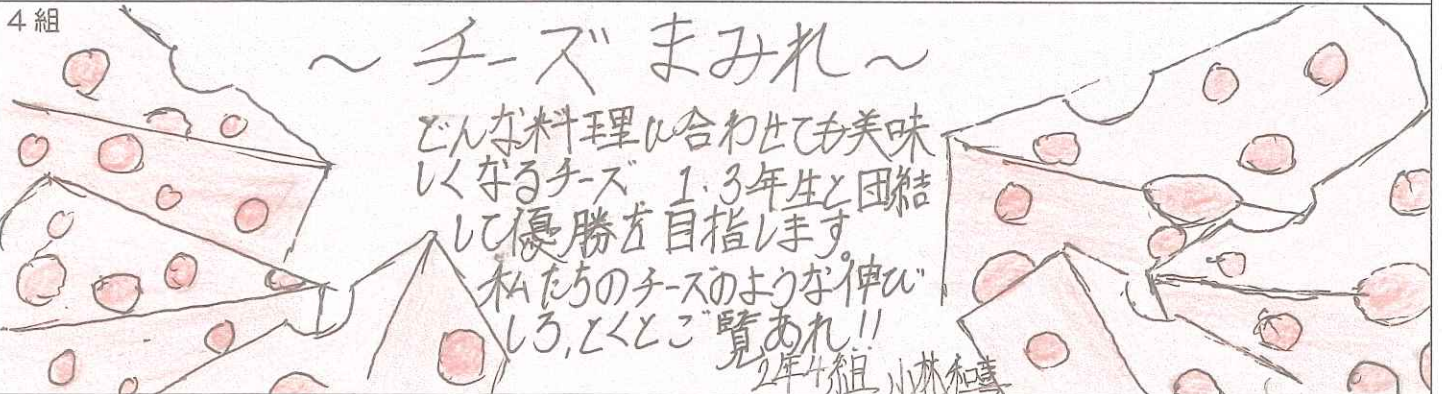 4組
～チーズまみれ～
どんな料理に合わせても美味
しくなるチーズ 1・3年生と団結
して優勝を目指します。
私たちのチーズのような伸び
しろ,とくとご覧あれ!!
2年4組 小林和喜